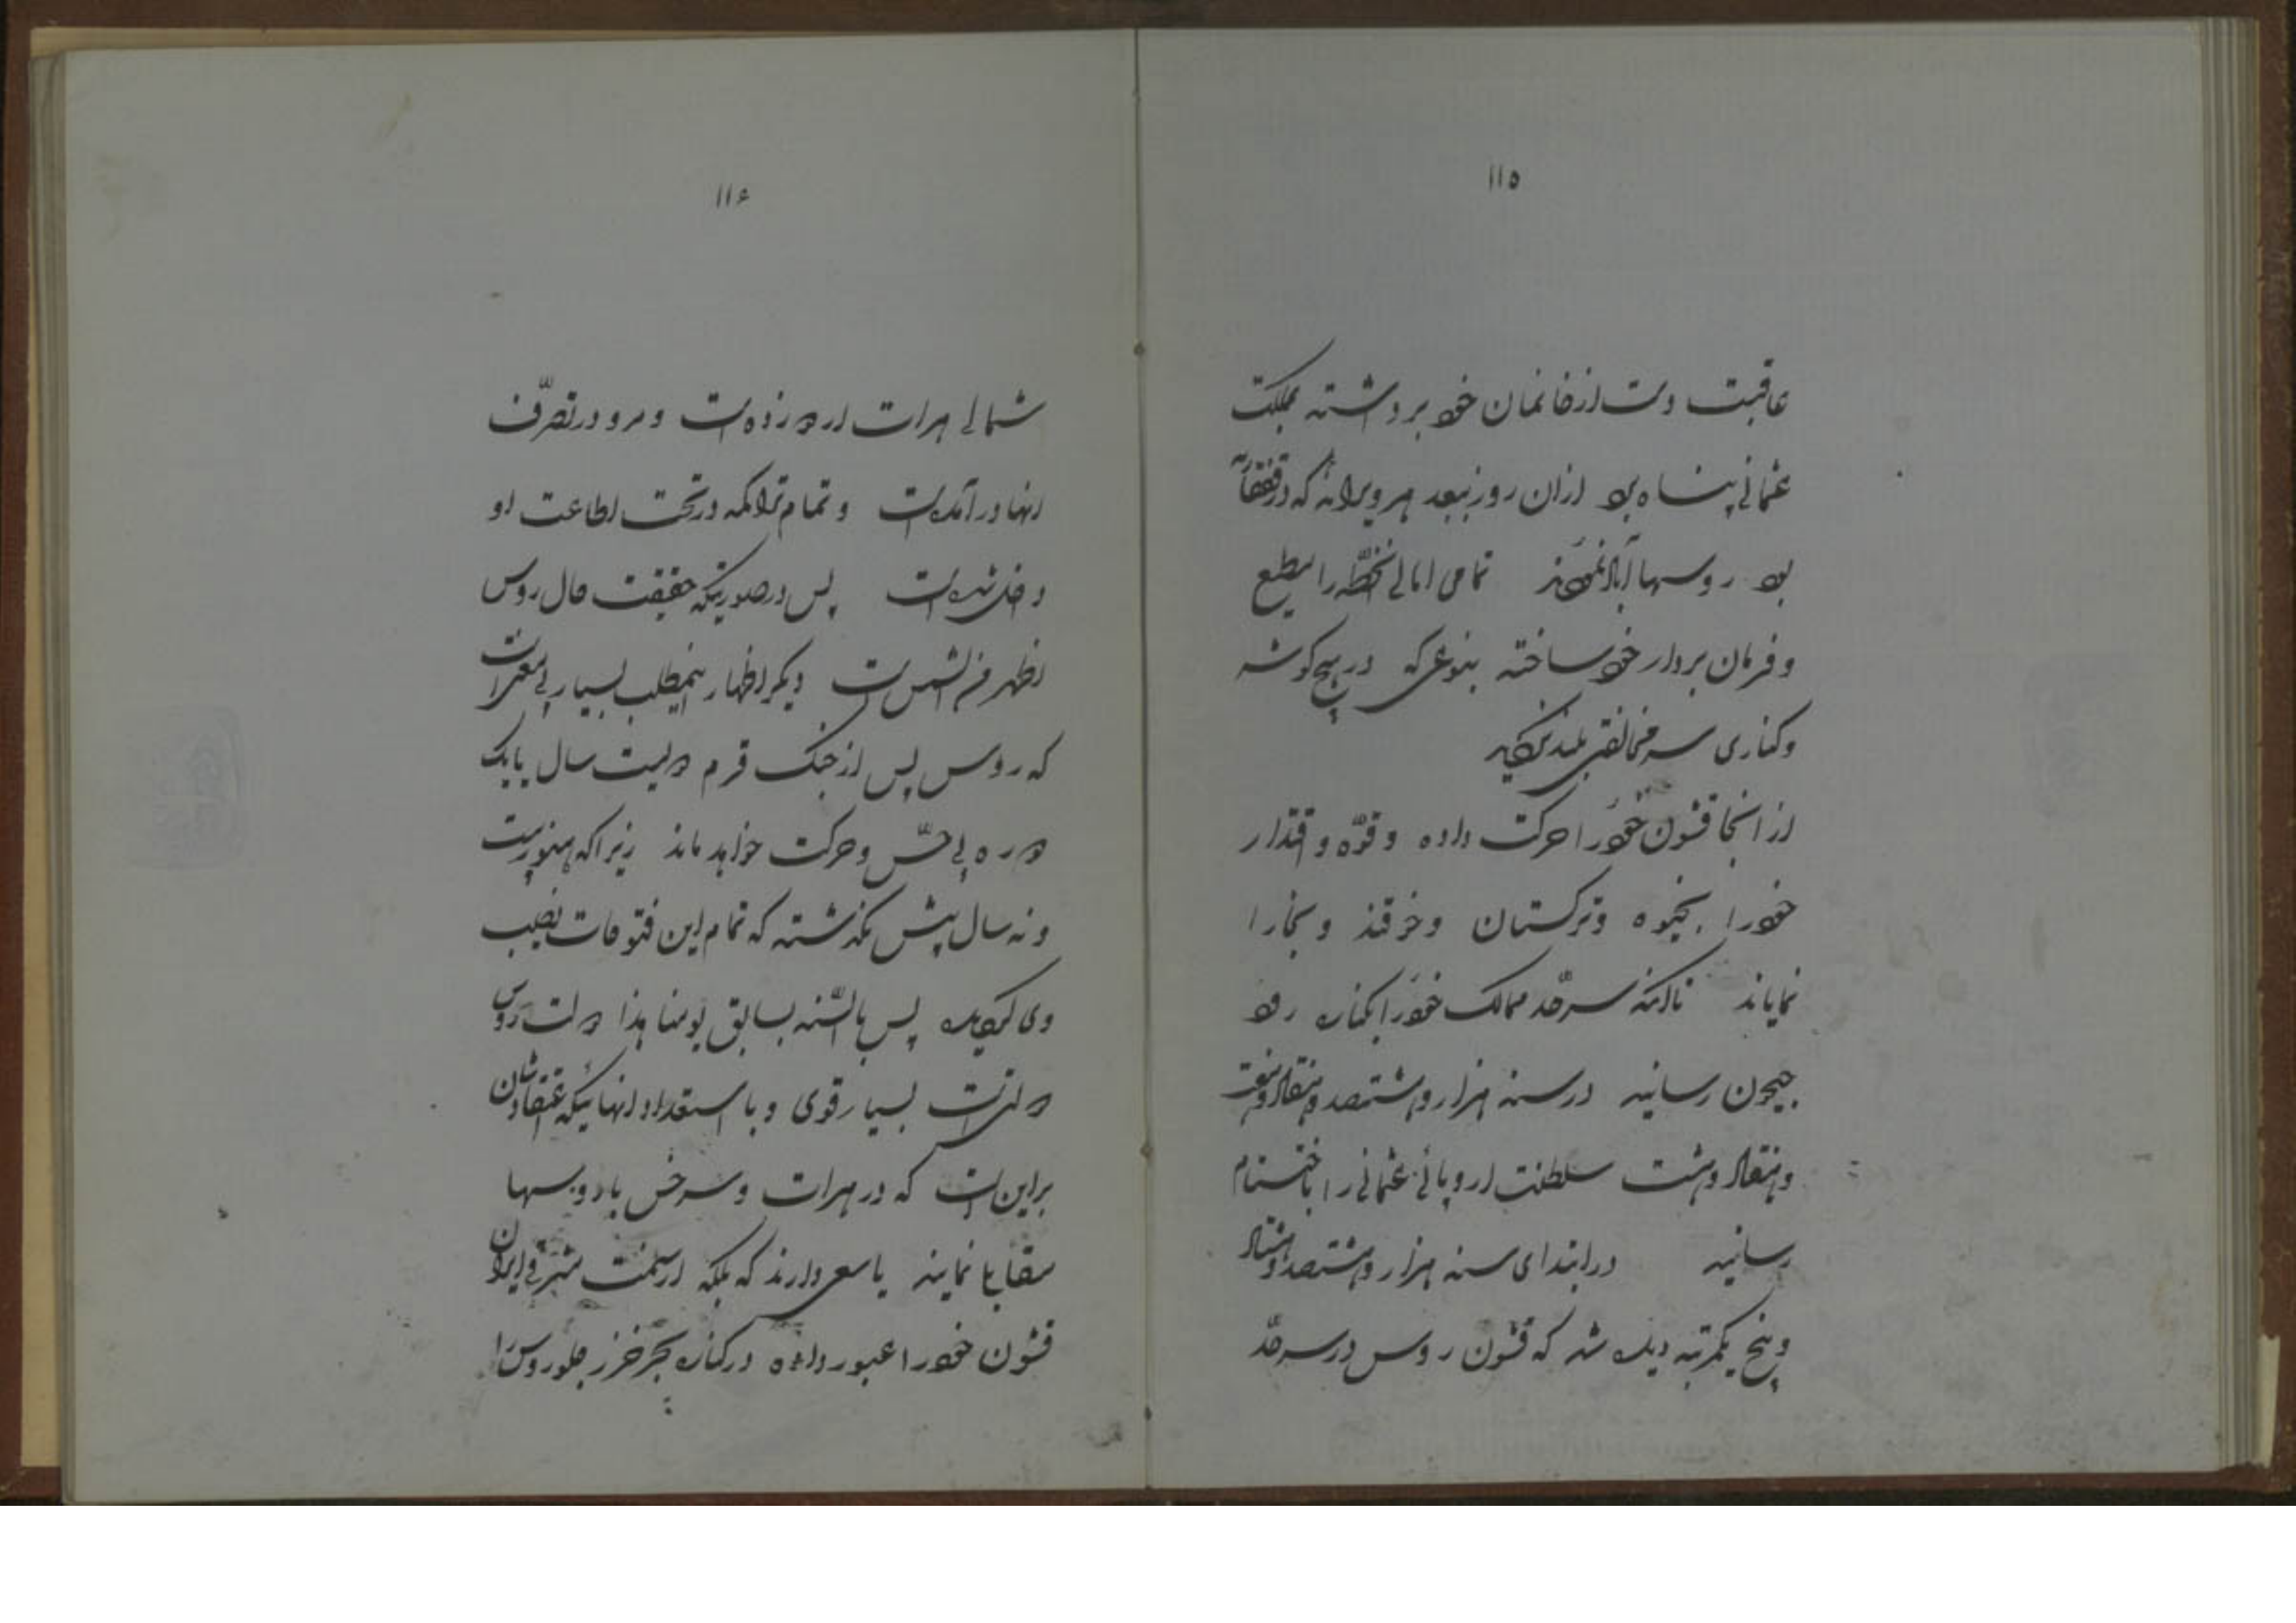 ۱۱۵
عاقبت دست از خانمان خود برداشته بمملکت
عثمانی پناه برد از ان روز ببعد هر ویرانهٔ که در قفقاز
بود روسها آباد نمودند تمامی اهالی انخطّه را مطیع
و فرمان بردار خود ساخته بنوعی که در هیچ گوشه
و کناری سر مخالفتی بلند نگردید
از انجا قشون خود را حرکت داده و قوّه و اقتدار
خود را بخیوه و ترکستان و خوقند و بخارا
نمایاندند تا اینکه سرحّد ممالک خود را بکناره رود
جیحون رسانیدند در سنه هزار و هشتصد و هفتاد و هفت
و هفتاد و هشت سلطنت اروپائی عثمانی را باختتام
رسانیدند در ابتدای سنه هزار و هشتصد و هشتاد
و پنج یکمرتبه دیده شد که قشون روس در سرحّد
۱۱۶
شمالی هرات اردو زده است و مرو در تصرّف
انها در آمده است و تمام تراکمه در تحت اطاعت او
داخل شده است پس در صورتیکه حقیقت حال روس
اظهر من الشمس است دیگر اظهار اینمطلب بسیار بی معنی است
که روس پس از جنگ قرم دویست سال یا یک
دوره بی حسّ و حرکت خواهد ماند زیرا که هنوز بیست
و نه سال بیش نگذشته که تمام این فتوحات نصیب
وی گردیده پس بالنّسبه بسابق یومنا هذا دولت روس
دولتی است بسیار قوی و با استعداد انهائیکه اعتقادشان
براین است که در هرات و سرخس با روسها
مقابله نمایند یا سعی دارند که بلکه از سمت شرقی ایران
قشون خود را عبور داده در کناره بحر خزر جلو روس را